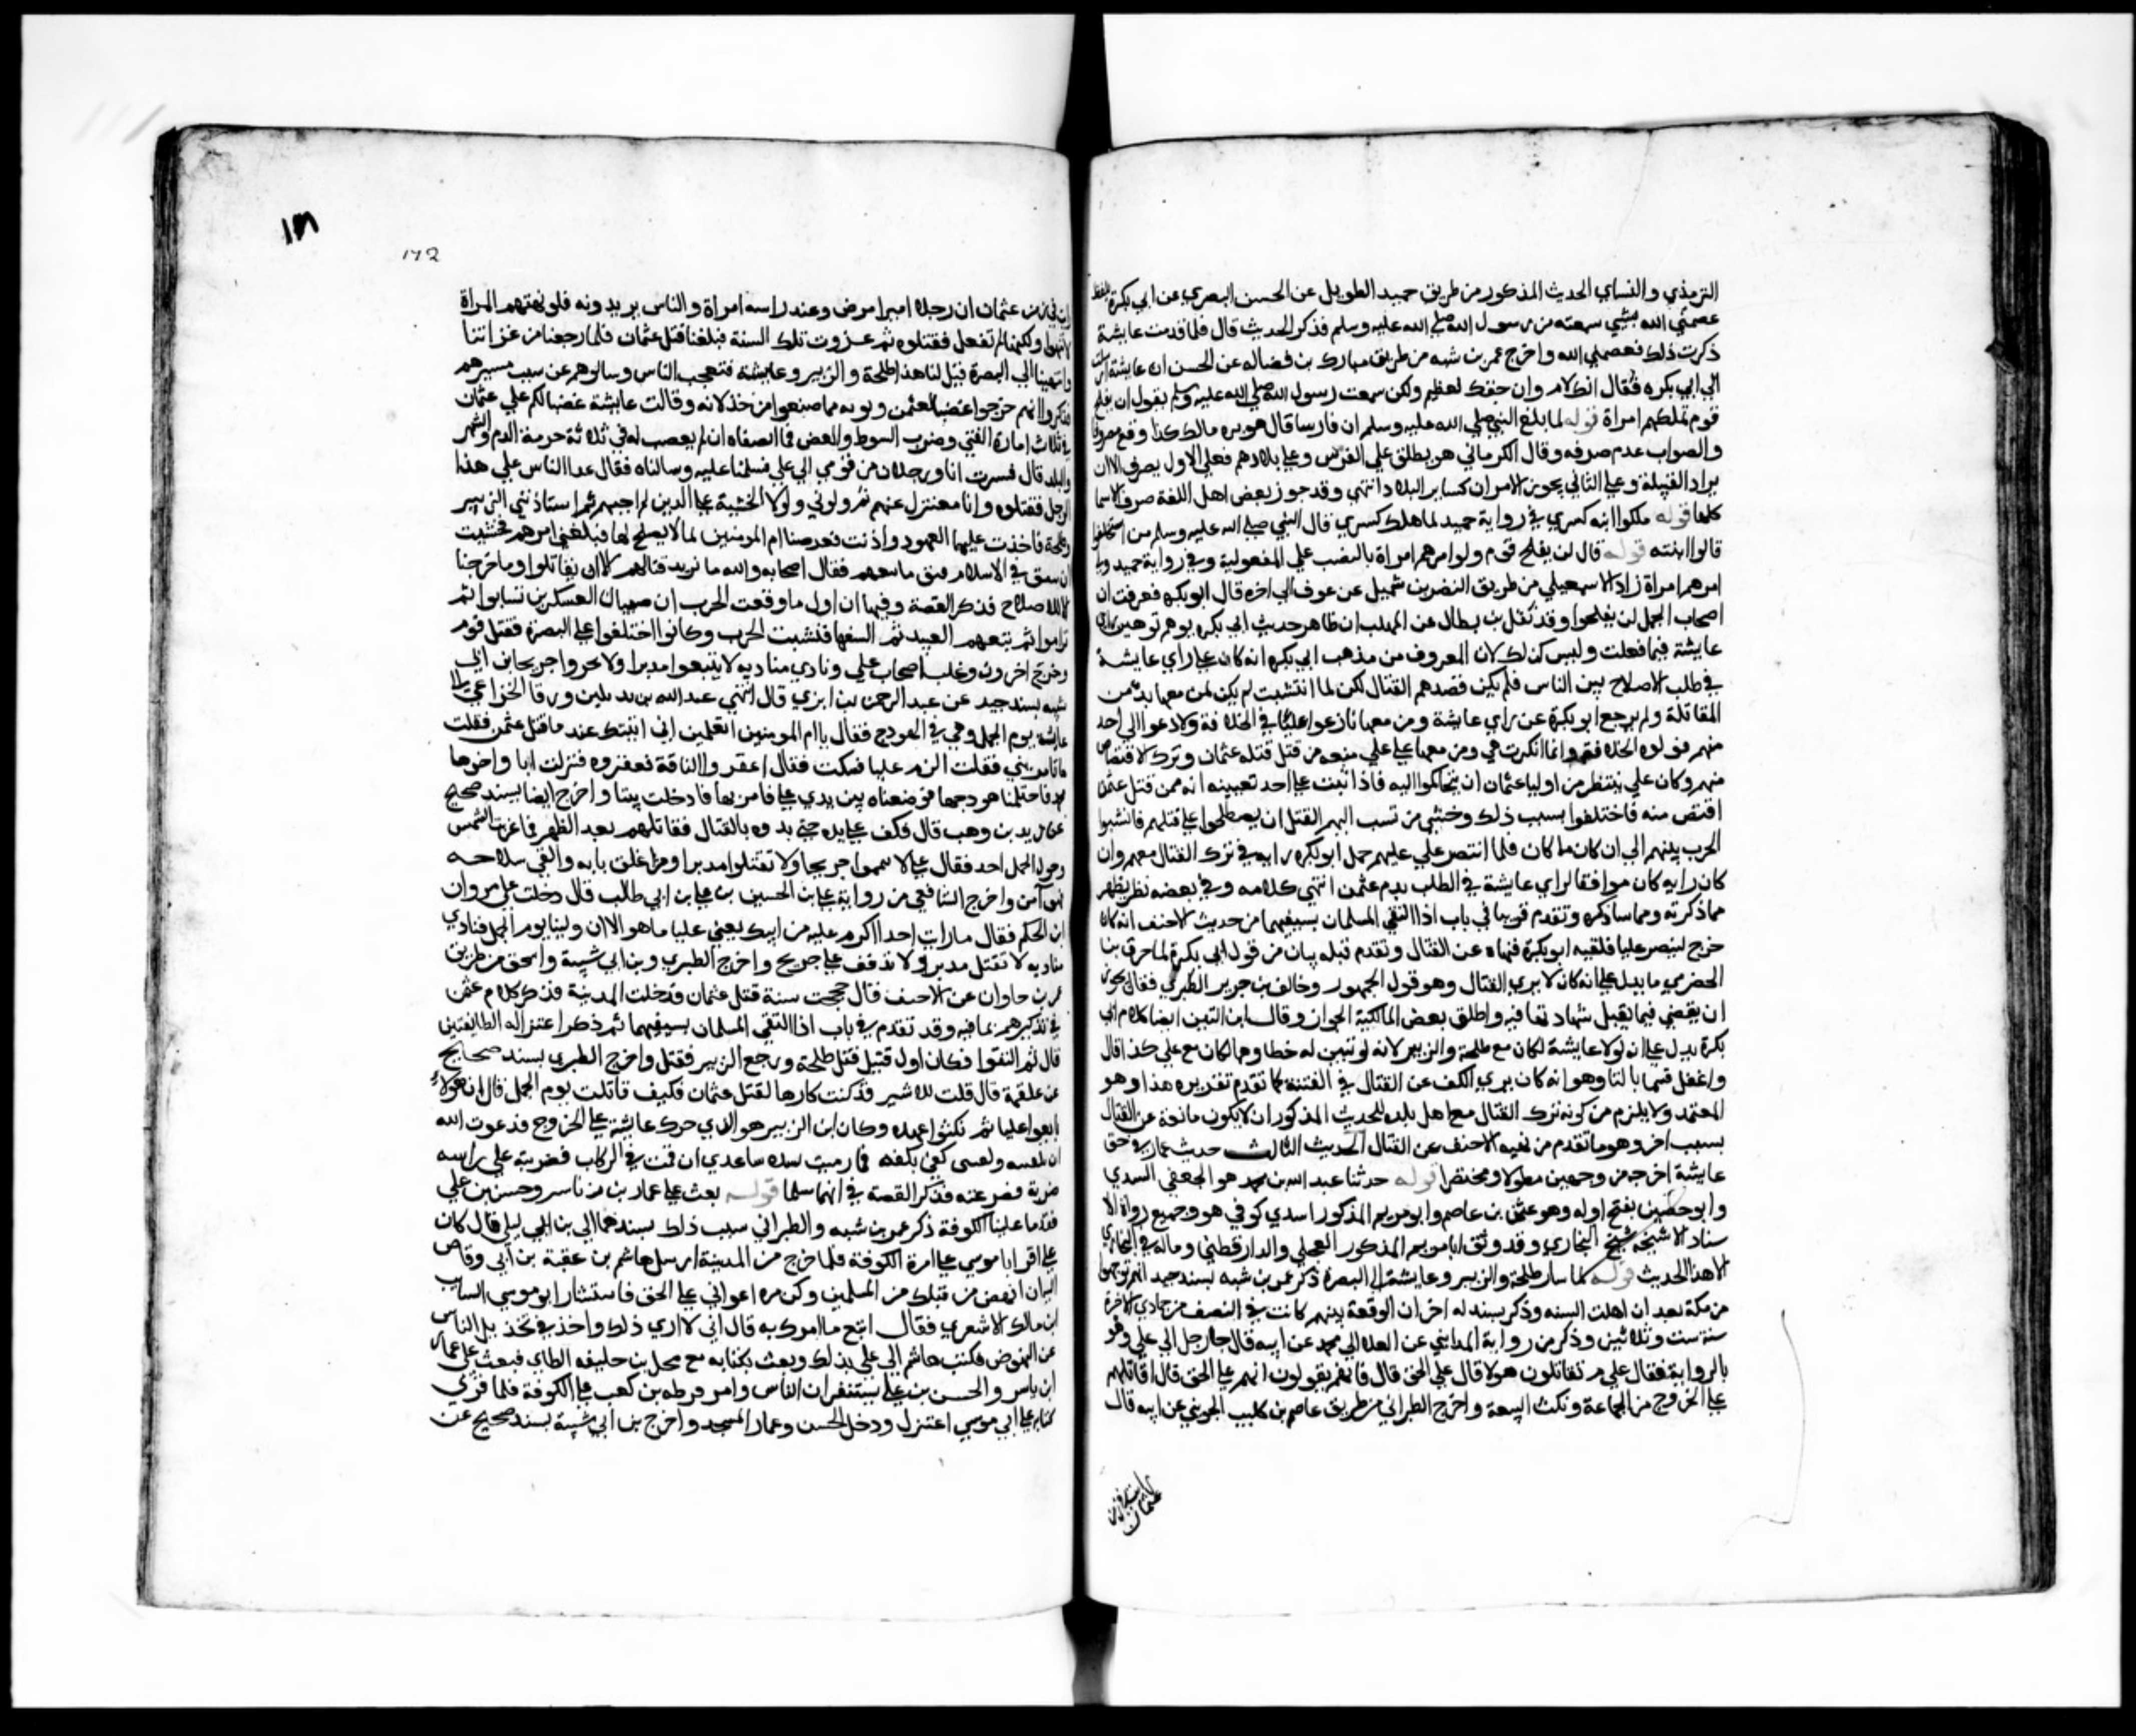 الترمذي والنساي الحديث المذكور من طريق حميد الطويل عن الحسن البصري عن ابي بكرة بلفظ
عصمني الله بشي سمعته من رسول الله صلى الله عليه وسلم فذكر الحديث قال فلما قدمت عايشة
ذكرت ذلك فعصمني الله واخرج عمر بن شبه من طريق مبارك بن فضاله عن الحسن ان عايشة ارسلت
الي ابي بكره فقال انك لام وان حقك لعظيم ولكن سمعت رسول الله صلى الله عليه وسلم يقول لن يفلح
قوم تملكهم امراة قوله لما بلغ النبي صلى الله عليه وسلم ان فارسا قال هو بن مالك كذا وقع مصروفا
والصواب عدم صرفه وقال الكرماني هو يطلق علي الفرس وعلى بلادهم فعلي الاول يصرف الا ان
يراد القبيلة وعلى الثاني يجوز الامران كساير البلاد انتهي وقد جوز بعض اهل اللغة صرف الاسما
كلها قوله ملكوا ابنه كسري في رواية حميد لما هلك كسري قال النبي صلى الله عليه وسلم من استخلفوا
قالوا ابنته قوله قال لن يفلح قوم ولوا امرهم امراة بالنصب علي المفعولية وفي رواية حميد ولي
امرهم امراة زاد الاسمعيلي من طريق النضر بن شميل عن عوف الي اخره قال ابو بكره فعرفت ان
اصحاب الجمل لن يفلحوا وقد نقل بن بطال عن المهلب ان ظاهر حديث ابي بكره يوهم توهين راي
عايشة فيما فعلت وليس كذلك لان المعروف من مذهب ابي بكره انه كان على راي عايشة
في طلب الاصلاح بين الناس فلم يكن قصدهم القتال لكن لما انتشبت لم يكن لمن معها بد من
المقاتلة ولم يرجع ابو بكرة عن راي عايشة ومن معها نازعوا عليا في الخلافة ولا دعوا الي احد
منهم فولوه الخلافة وانما انكرت هي ومن معها على علي منعه من قتل قتله عثمان وترك الاقتصاص
منهم وكان علي ينتظر من اوليا عثمان ان يتحاكموا اليه فاذا ثبت على احد تعيينه انه ممن قتل عثمان
اقتص منه فاختلفوا بسبب ذلك وخشي من نسب اليهم القتل ان يصطلحوا على قتلهم فانشبوا
الحرب بينهم الي ان كان ما كان فلما انتصر علي عليهم حمل ابو بكره رايه في ترك القتال معهم وان
كان رايه كان موافقا لراي عايشة في الطلب بدم عثمن انتهي كلامه وفي بعضه نظر يظهر
مما ذكرته ومما ساذكره وتقدم قريبا في باب اذا التقي المسلمان بسيفيهما من حديث الاحنف انه كان
خرج لينصر عليا فلقيه ابو بكرة فنهاه عن القتال وتقدم قبله ببان من قول ابي بكرة لما حرق بن
الحضرمي ما يدل على انه كان لا يري القتال وهو قول الجمهور وخالف بن جرير الطبري فقال يجوز
ان يقضي فيما يقبل شهادتها فيه واطلق بعض المالكية الجواز وقال ابن التين ايضا كلام ابي
بكرة يدل على ان لولا عايشة لكان مع طلحة والزبير لانه لو تبين له خطاوهما لكان مع علي كذا قال
واغفل قسما ثالثا وهو انه كان يري الكف عن القتال في الفتنة كما تقدم تقريره هذا وهو
المعتمد ولا يلزم من كونه ترك القتال مع اهل بلده للحديث المذكور ان لا يكون مانعه عن القتال
بسبب اخر وهو ما تقدم من نهيه الاحنف عن القتال الحديث الثالث حديث عمار في حق
عايشة اخرجه من وجهين مطولا ومختصرا قوله حدثنا عبد الله بن محمد هو الجعفي السندي
وابو حصين بفتح اوله وهو عثمن بن عاصم وابو مريم المذكور اسدي كوفي هو وجميع رواة الا
سناد الا شيخه شيخ البخاري وقد وثق ابا مريم المذكور العجلي والدارقطني وماله في البخاري
الا هذا الحديث قوله لما سار طلحة والزبير وعايشة الى البصرة ذكر عمر بن شبه بسند جيد انهم توجهوا
من مكة بعد ان اهلت السنه وذكر بسند له اخر ان الوقعة بينهم كانت في النصف من جمادي الاخرة
سنة ست وثلاثين وذكر من رواية المدايني عن العلا ابي محمد عن ابيه قال جا رجل الي علي وهو
بالزواية فقال علي م تقاتلون هولا قال علي الحق قال فانهم يقولون انهم على الحق قال اقاتلهم
على الخروج من الجماعة ونكث البيعة واخرج الطبراني من طريق عاصم بن كليب الجرمي عن ابيه قال
١٧٢
زمن عثمان ان رجلا اميرا مرض وعند راسه امراة والناس يريدونه فلو نهتهم المراة
لانتهوا ولكنها لم تفعل فقتلوه ثم غزوت تلك السنة فبلغنا قتل عثمان فلما رجعنا من غزاتنا
وانتهينا الي البصرة قيل لنا هذا طلحة والزبير وعايشة فتعجب الناس وسالوهم عن سبب مسيرهم
فذكروا انهم خرجوا غضبا لعثمن وتوبه مما صنعوا من خذلانه وقالت عايشة غضبنا لكم علي عثمان
في ثلاث امارة الفتي وضرب السوط والعصي فما انصفناه ان لم نغضب له في ثلاثة حرمة الدم والشهر
والبلد قال فسرت انا ورجلان من قومي الي علي فسلمنا عليه وسالناه فقال عدا الناس علي هذا
الرجل فقتلوه وانا معتزل عنهم ثم ولوني ولولا الخشية على الدين لم اجبهم ثم استاذنني الزبير
وطلحة فاخذت عليهما العهود واذنت فعرضا ام المومنين لما لا يصلح لها فبلغني امرهم فخشيت
ان ينفتق في الاسلام فتق فاتبعتهم فقال اصحابه والله ما نريد قتالهم الا ان يقاتلوا وما خرجنا
الا للاصلاح فذكر القصة وفيها ان اول ما وقعت الحرب ان صبيان العسكرين تسابوا ثم
تراموا ثم تبعهم العبيد ثم السفها فنشبت الحرب وكانوا اختلفوا على البصرة فقتل قوم
وخرج اخرون وغلب اصحاب علي ونادي مناديه لا يتبعوا مدبرا ولا تجهزوا جريحا بن ابي
شيبه بسند جيد عن عبد الرحمن بن ابزي قال انتهي عبد الله بن بديل بن ورقا الخزاعي الى
عايشة يوم الجمل وهي في الهودج فقال يا ام المومنين اتعلمين اني اتيتك عند ما قتل عثمن فقلت
ما تامريني فقلت الزم عليا فسكت فقال اعقروا الناقة فعقروه فنزلت انا واخوها
محمد فاحتملنا هودجها فوضعناه بين يدي علي فامر بها فادخلت بيتا واخرج ايضا بسند صحيح
عن زيد بن وهب قال فكف على يده حتى بدوه بالقتال فقاتلهم بعد الظهر فما غربت الشمس
وحول الجمل احد فقال علي لا تتمموا جريحا ولا تقتلوا مدبرا ومن اغلق بابه والقي سلاحه
فهو آمن واخرج الشافعي من رواية علي بن الحسين بن علي بن ابي طالب قال دخلت على مروان
ابن الحكم فقال ما رايت احدا اكرم عليه من ابيك يعني عليا ما هو الا ان ولينا يوم الجمل فنادي
مناديه لا تقتل مدبر ولا تذفف على جريح واخرج الطبري وبن ابي شيبة واسحق من طريق
عمر بن جاوان عن الاحنف قال حججت سنة قتل عثمان فدخلت المدينة فذكر كلام عثمن
في تذكيرهم بما فيه وقد تقدم في باب اذا التقي المسلمان بسيفيهما ثم ذكر اعتزاله الطايفتين
قال ثم التقوا فكان اول قتيل قتل طلحة ورجع الزبير فقتل واخرج الطبري بسند صحيح
عن علقمة قال قلت للاشتر قد كنت كارها لقتل عثمان فكيف قاتلت يوم الجمل قال ان هولاء
بايعوا عليا ثم نكثوا عهده وكان ابن الزبير هو الذي حرك عايشة على الخروج فدعوت الله
ان يكفينيه ولقيني كفة بكفة فما رضيت لشدة ساعدي ان قمت في الركاب فضربته على راسه
ضربة فصرعته فذكر القصة في انهما سلما قوله بعث على عمار بن ياسر وحسن بن علي
فقدما علينا الكوفة ذكر عمر بن شبه والطبراني سبب ذلك بسندهما الي بن ابي ليلي قال كان
علي اقر ابا موسي على امرة الكوفة فلما خرج من المدينة ارسل هاشم بن عتبة بن ابي وقاص
اليه ان انهض من قبلك من المسلمين وكن من اعواني على الحق فاستشار ابو موسي السايب
ابن مالك الاشعري فقال اتبع ما امرك به قال اني لا اري ذلك واخذ في تخذيل الناس
عن النهوض فكتب هاشم الي علي بذلك وبعث بكتابه مع محل بن خليفه الطاي فبعث علي عمار
ابن ياسر والحسن بن علي يستنفران الناس وامر قرظه بن كعب على الكوفة فلما قري
كتابه على ابي موسي اعتزل ودخل الحسن وعمار المسجد واخرج بن ابي شيبة بسند صحيح عن